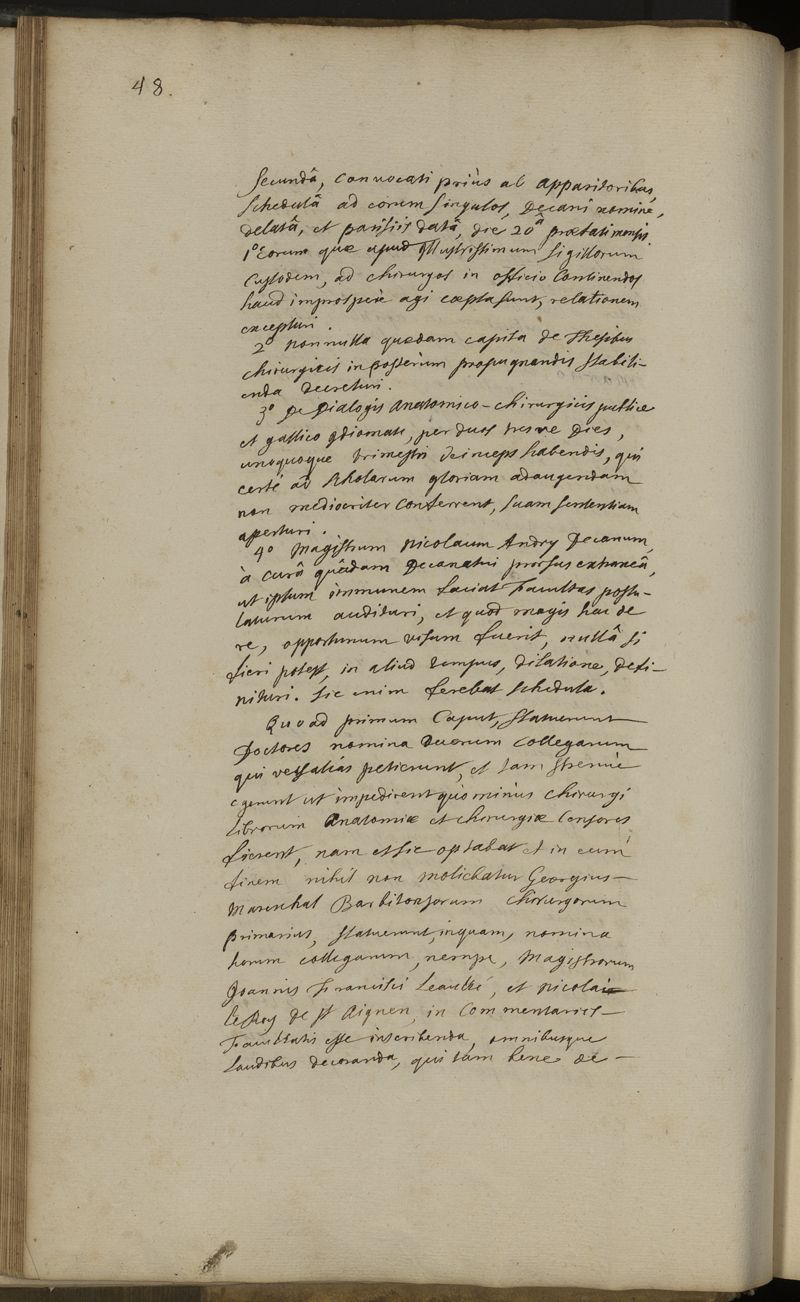 48.
secundâ, convocati priùs ab apparitoribus,
schedulâ ad eorum singulos, Decani nomine,
delatâ, et parisiis datâ, die 20â prætati mensis.
1º Eorum quæ apud Illustrissimum sigillorum
Custodem, ad chirurgos in officio continendos
haud improsperè agi cæpta sunt, relationem
excepturi.
2º nonnulla quædam capita de Thesibus
chirurgicis in posterùm propugnandis stabili-
enda decreturi.
3º De Dialogis anatomico-chirurgicis publice
et gallico Idiomate, per duos tresve Dies,
unoquoque trimestri deinceps habendis, qui
certè ad scholarum gloriam adaugendam
non mediocriter conferrent, suam sententiam
aperturi.
4º Magistrum Nicolaum Andry Decanum,
à curâ quâdam Decanatui prorsus extraneâ,
ut ipsum immunem faciat Facultas postu-
laturum audituri, et quod magis hac de
re, opportunum visum fuerit, nullâ si
fieri potest, in aliud tempus, dilatione, defi-
nituri. sic enim ferebat schedula.
Quoad primum Caput, statuerunt
Doctores nomina duorum collegarum
qui versalias petierunt, et tam strenuè
egerunt ut impedirent quominùs chirurgi
librorum Anatomiæ et chirurgiæ Censores
fierent, nam et sic optabat et in eum
finem nihil non moliebatur Georgius
Mareschal Barbitonsorum chirurgorum
primarius, statuerunt, inquam, nomina
horum collegarum, nempe, Magistrorum
Joannis Francisci Leaulté, et Nicolai
le Roy de St Aignen, in Commentariis
Facultatis esse inscribenda, omnibusque
laudibus decoranda, qui tam bene de